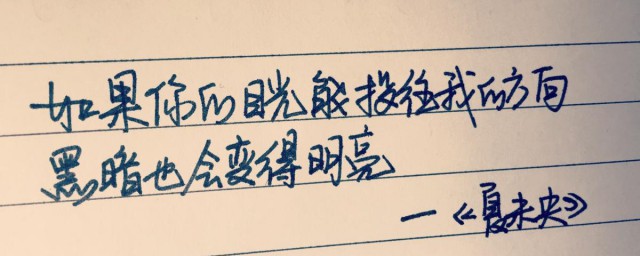 如果你的目光能投往我的方向
黑暗也会变得明亮
—《夏未央》